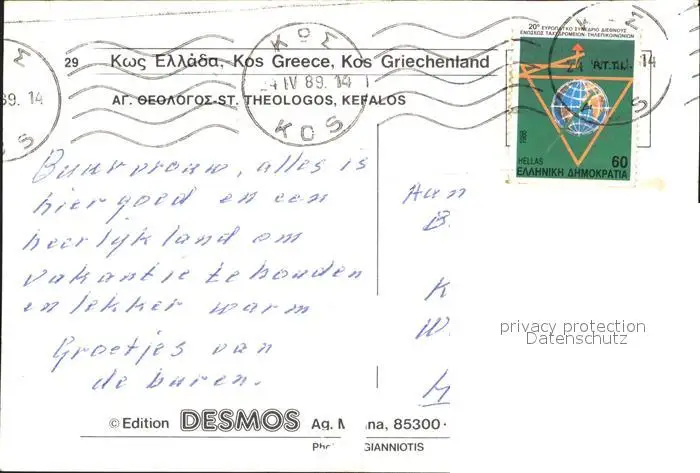 29 Κως Ελλάδα, Kos Greece, Kos Griechenland
ΑΓ. ΘΕΟΛΟΓΟΣ-ST. THEOLOGOS, KEFALOS
ΚΩΣ
24 IV 89. 14
KOS
20° ΕΥΡΩΠΑΪΚΟ ΣΥΝΕΔΡΙΟ ΔΙΕΘΝΟΥΣ
ΕΝΩΣΕΩΣ ΤΑΧΥΔΡΟΜΕΙΩΝ-ΤΗΛΕΠΙΚΟΙΝΩΝΙΩΝ
1986
HELLAS 60
ΕΛΛΗΝΙΚΗ ΔΗΜΟΚΡΑΤΙΑ
Buurvrouw, alles is
hier goed en een
heerlijk land om
vakantie te houden
en lekker warm
Groetjes van
de buren.
Aan
B.
K
W.
privacy protection
Datenschutz
© Edition DESMOS Ag. M na, 85300
GIANNIOTIS